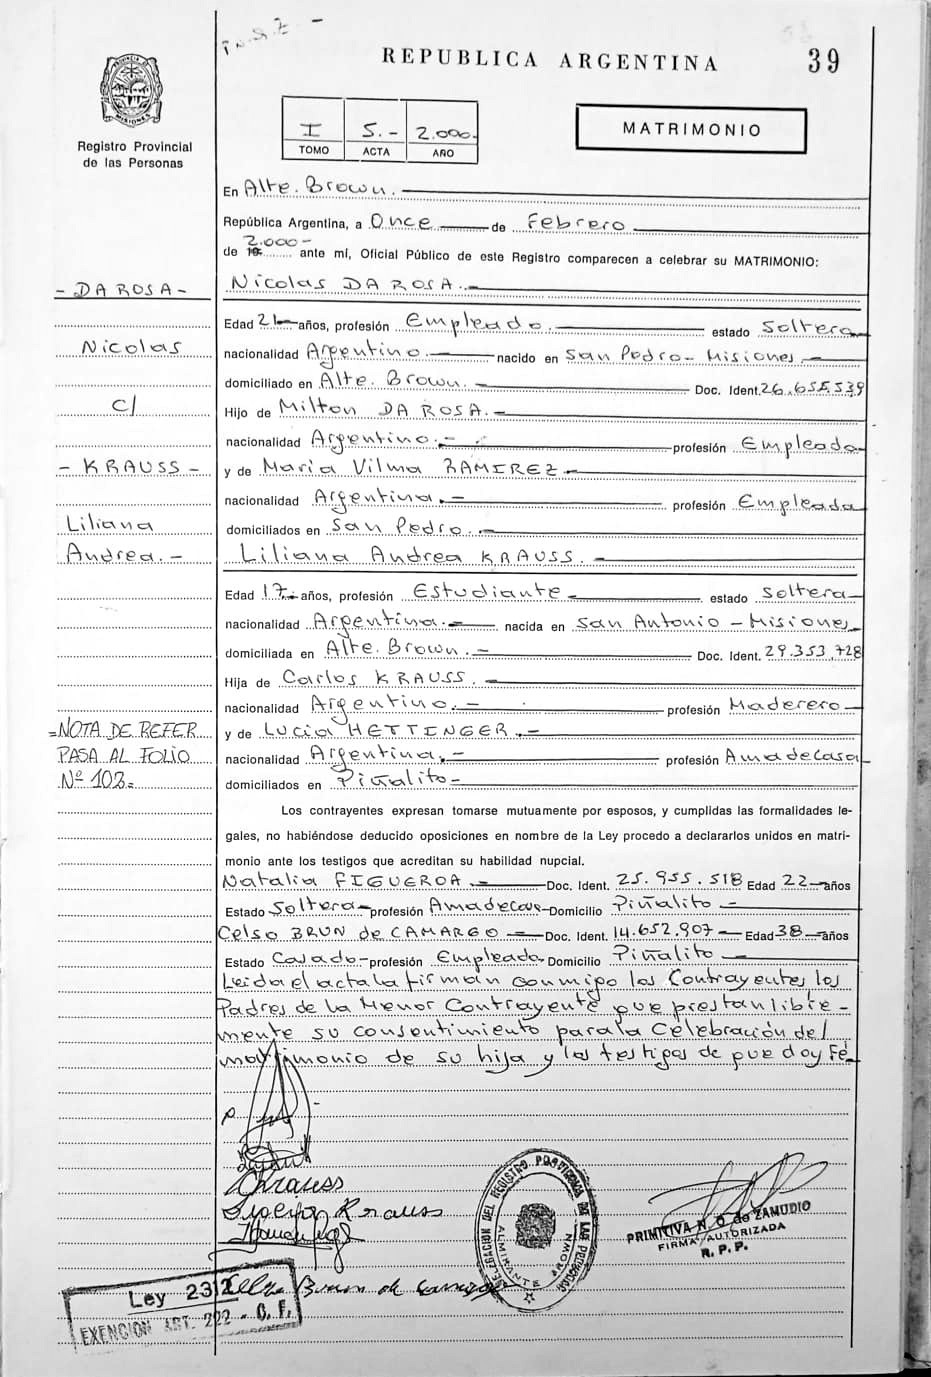 REPUBLICA ARGENTINA
39
PROVINCIA DE MISIONES
Registro Provincial
de las Personas
I 5.- 2.000.-
TOMO ACTA AÑO
MATRIMONIO
En Alte. Brown.
República Argentina, a Once de Febrero
de 19 2.000- ante mí, Oficial Público de este Registro comparecen a celebrar su MATRIMONIO:
Nicolas DA ROSA.-
Edad 21 años, profesión Empleado. estado Soltera
nacionalidad Argentino. nacido en San Pedro - Misiones.
domiciliado en Alte. Brown. Doc. Ident. 26.655.539
Hijo de Milton DA ROSA.-
nacionalidad Argentino.- profesión Empleada
y de Maria Vilma RAMIREZ-
nacionalidad Argentina.- profesión Empleada
domiciliados en San Pedro.-
Liliana Andrea KRAUSS.-
Edad 17.- años, profesión Estudiante estado Soltera-
nacionalidad Argentina.- nacida en San Antonio - Misiones
domiciliada en Alte. Brown.- Doc. Ident. 29.353.728
Hija de Carlos KRAUSS.-
nacionalidad Argentino.- profesión Maderero-
y de Lucia HETTINGER.-
nacionalidad Argentina.- profesión Ama de Casa
domiciliados en Piñalito-
Los contrayentes expresan tomarse mutuamente por esposos, y cumplidas las formalidades le-
gales, no habiéndose deducido oposiciones en nombre de la Ley procedo a declararlos unidos en matri-
monio ante los testigos que acreditan su habilidad nupcial.
Natalia FIGUEROA.- Doc. Ident. 25.955.518 Edad 22 años
Estado Soltera- profesión Ama de Casa- Domicilio Piñalito-
Celso BRUN de CAMARGO- Doc. Ident. 14.652.907- Edad 38- años
Estado Casado- profesión Empleada Domicilio Piñalito-
Leida el acta la firman conmigo los Contrayentes los
Padres de la Menor Contrayente que prestan libre-
mente su consentimiento para la Celebración del
matrimonio de su hija y los testigos de que doy Fé-
- DA ROSA -
Nicolas
C/
- KRAUSS -
Liliana
Andrea.-
=NOTA DE REFER
PASA AL FOLIO
Nº 103=
Krauss
Krauss
DELEGACION DEL REGISTRO PROVINCIAL DE LAS PERSONAS
ALMIRANTE BROWN
PRIMITIVA N. O. de ZAMUDIO
FIRMA AUTORIZADA
R. P. P.
Ley 2312
EXENCION ART. 222 - C. F.